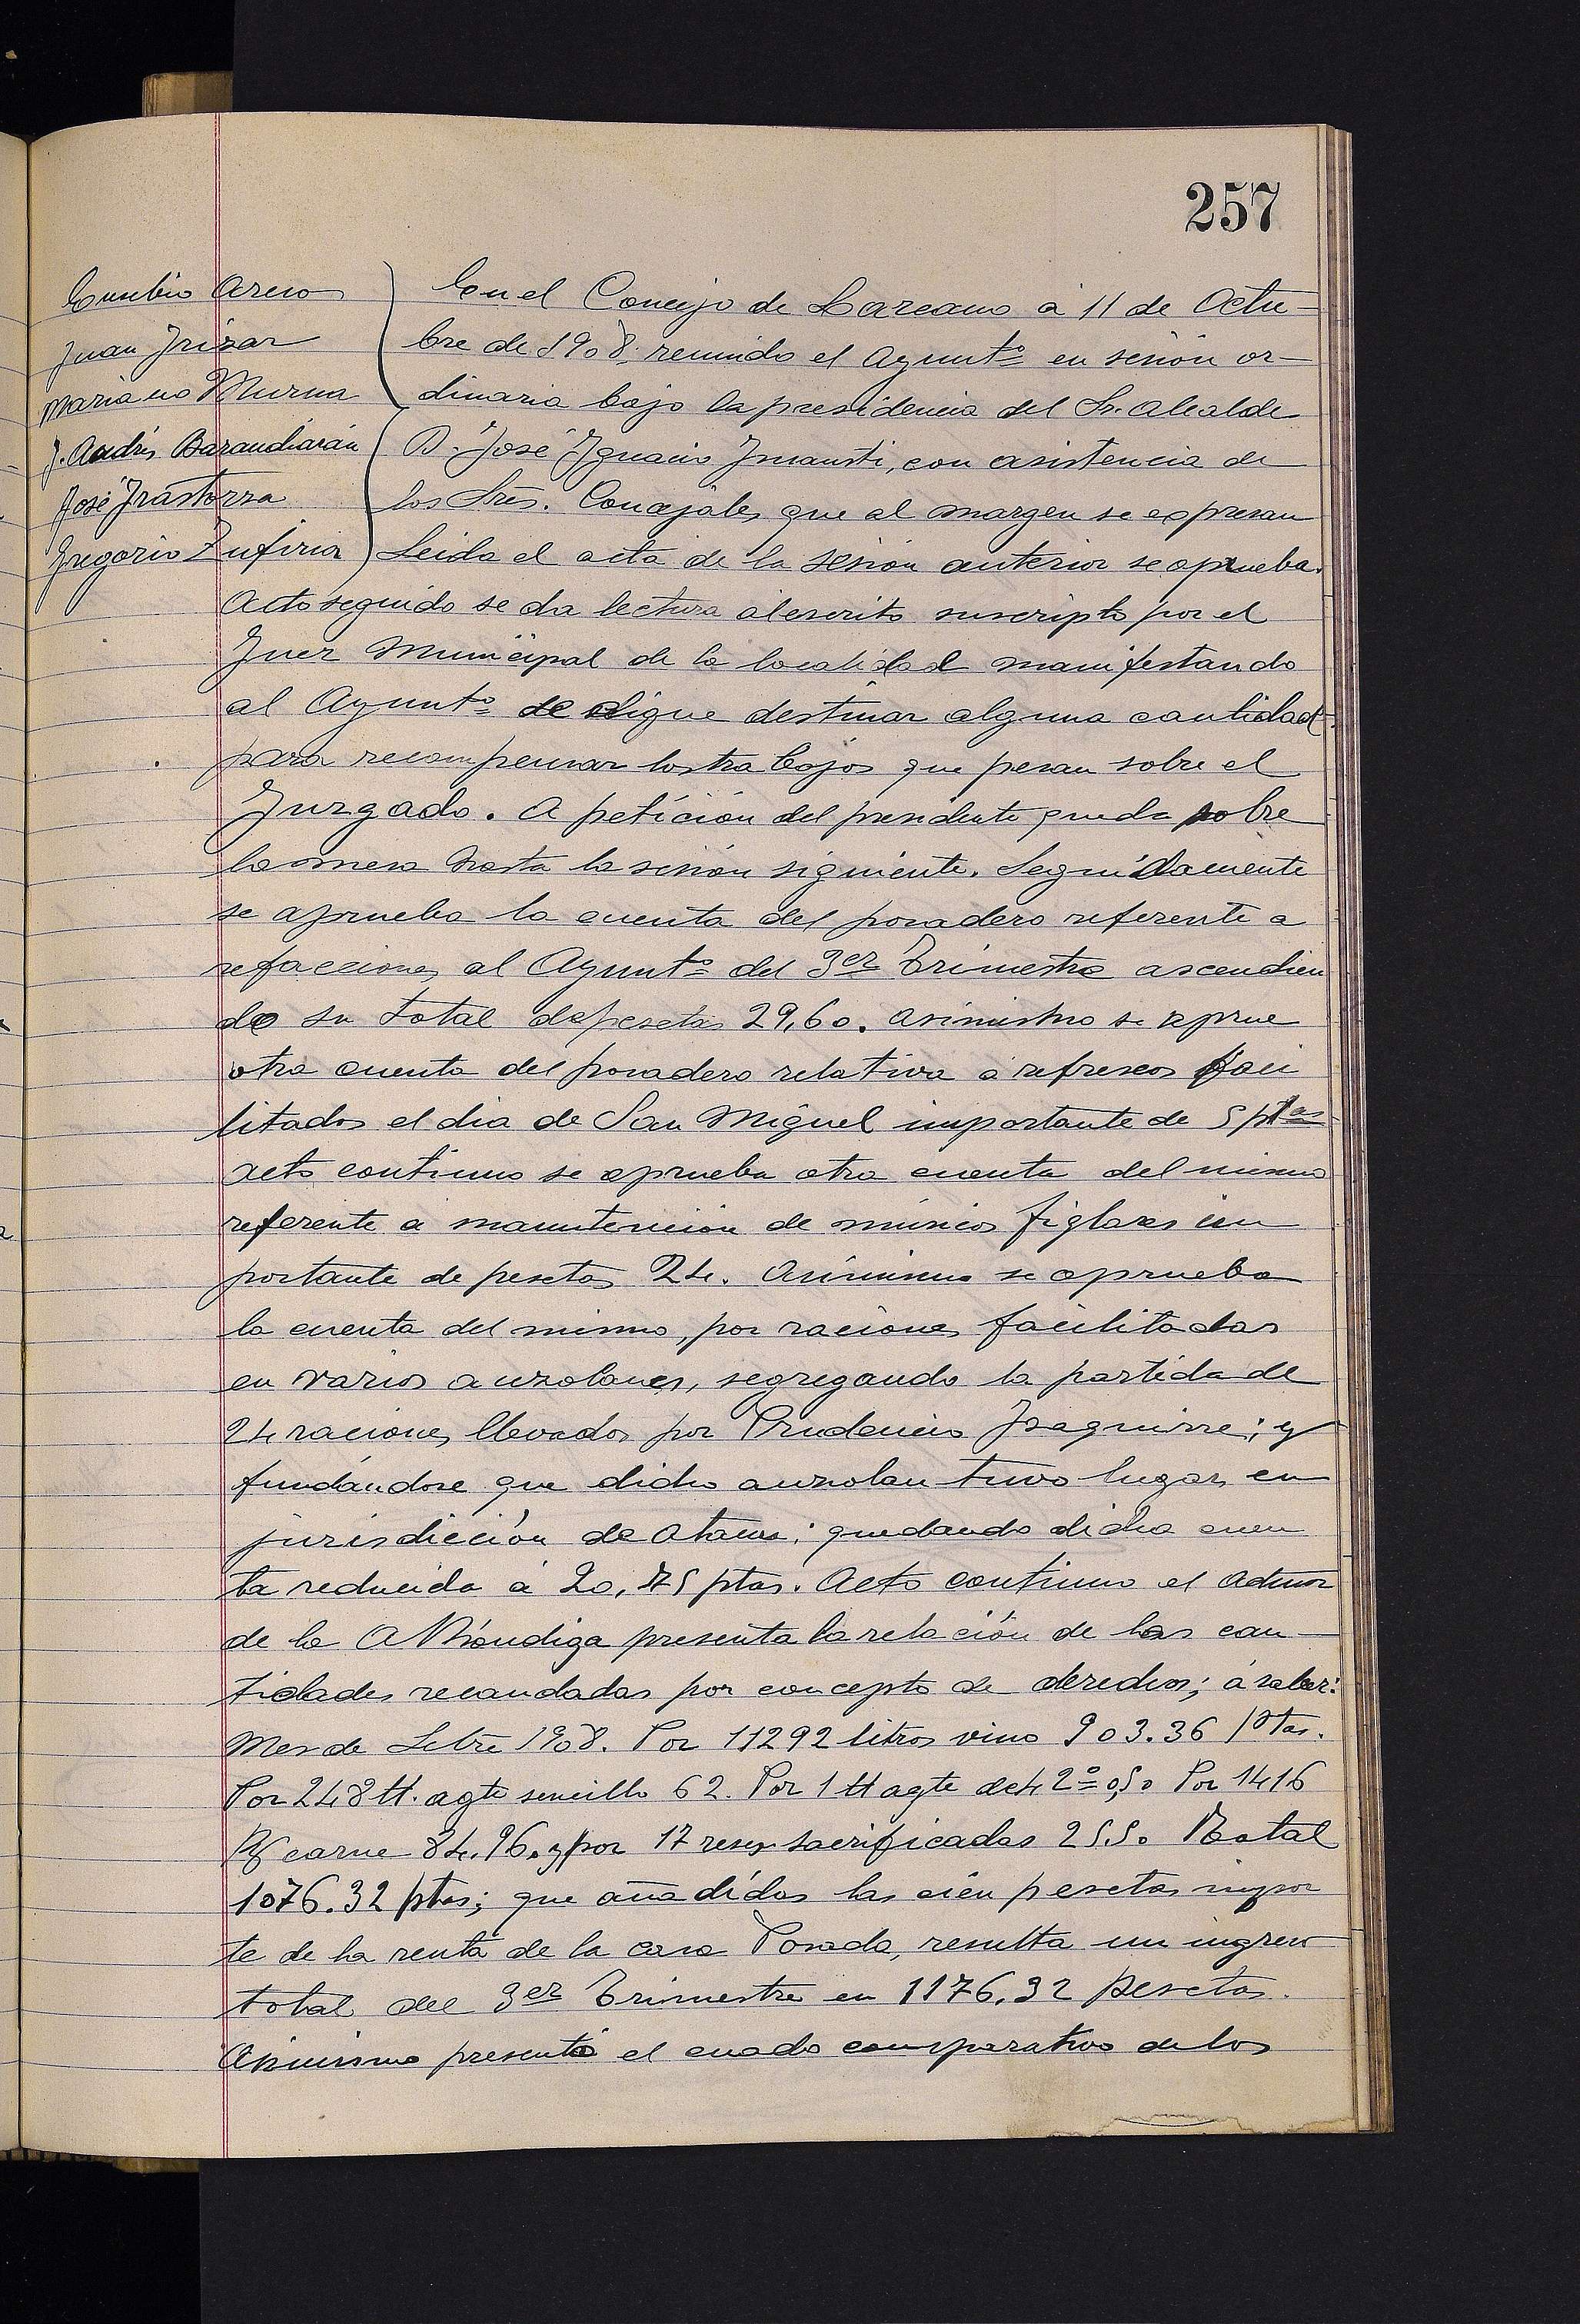 257
Eusebio Areso
Juan Irizar
Mariano Murua
J. Andrés Barandiarán
José Irastorza
Gregorio Zufiria
En el Concejo de Lazcano á 11 de Octu-
bre de 1908 reunido el Ayuntº en sesión or-
dinaria bajo la presidencia del Sr. Alcalde
D. José Ignacio Insausti, con asistencia de
los Sres. Concejales que al margen se expresan
Leida el acta de la sesión anterior se aprueba.
Acto seguido se da lectura al escrito suscripto por el
Juez Municipal de la localidad manifestando
al Ayuntº se digne destinar alguna cantidad
para recompensar los trabajos que pesan sobre el
Juzgado. A petición del presidente queda sobre
la mesa hasta la sesión siguiente. Seguidamente
se aprueba la cuenta del posadero referente a
refacciones al Ayuntº del 3er Trimestre ascendien
do su total de pesetas 29,60. Asimismo se aprue
otra cuenta del posadero relativa á refrescos faci
litados el dia de San Miguel importante de 5 ptas
Acto continuo se aprueba otra cuenta del mismo
referente a manutención de músicos figlares im
portante de pesetas 24. Asimismo se aprueba
la cuenta del mismo, por raciones facilitadas
en varios auzolanes, segregando la partida de
24 raciones llevados por Prudencio Izaguirre; y
fundándose que dicho auzolan tuvo lugar en
jurisdicción de Ataun; quedando dicha cuen
ta reducida á 20,75 ptas. Acto continuo el Admor
de la Alhóndiga presenta la relación de las can-
tidades recaudadas por concepto de derechos; á saber:
Mes de Setbre 1908. Por 11292 litros vino 903.36 Ptas.
Por 248 tt. agte sencillo 62. Por 1 tt agte de 2º 0,50 Por 1416
Kg carne 84.96. y por 17 reses sacrificadas 25.50 Total
1076.32 ptas; que añadidas las cien pesetas impor
te de la renta de la casa Posada, resulta un ingreso
total del 3er Trimestre en 1176.32 pesetas.
Asimismo presentó el cuado comparativo de los